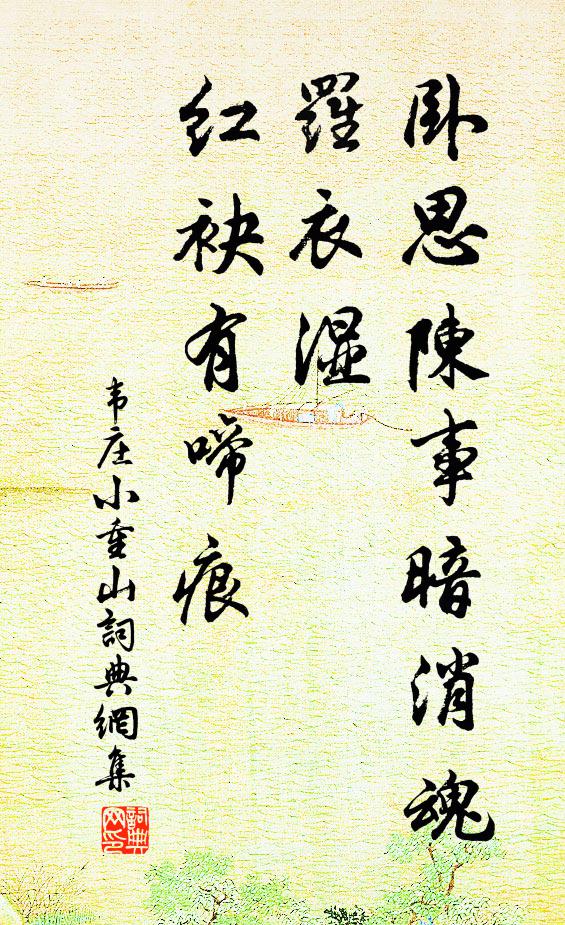 卧思陳事暗消魂
羅衣湿
红袂有啼痕
韦庄小重山詞典網集
詞典网印